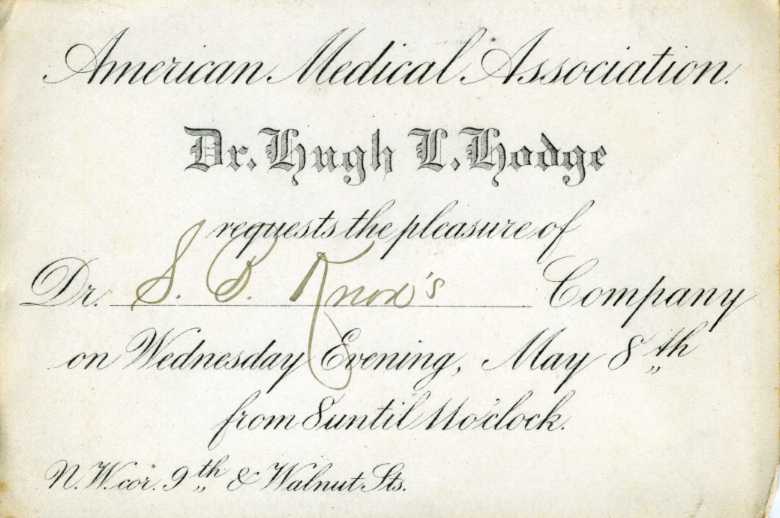 American Medical Association.
Dr. Hugh L. Hodge
requests the pleasure of
Dr. S. B. Knox's Company
on Wednesday Evening, May 8th
from 8 until 11 o'clock.
N. W. cor. 9th & Walnut Sts.